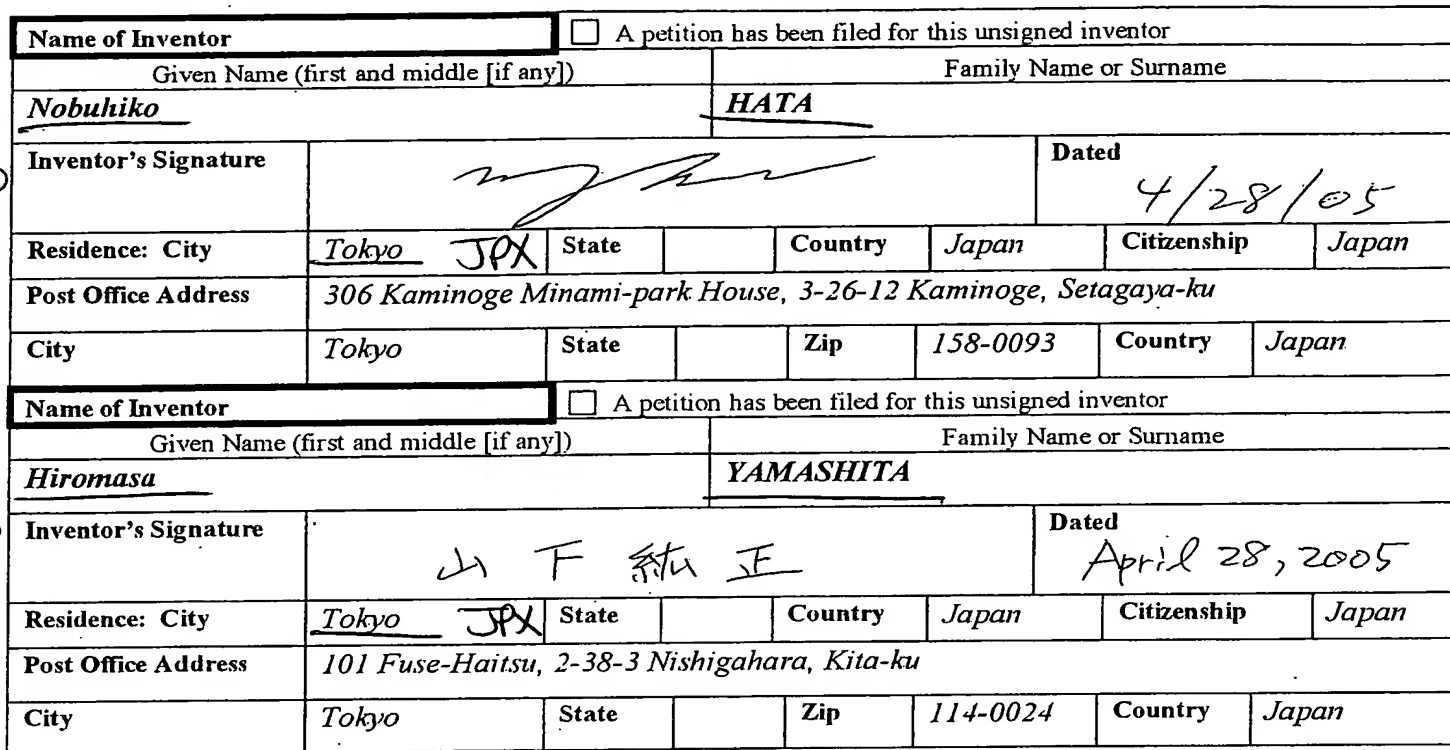 Name of Inventor ☐ A petition has been filed for this unsigned inventor
Given Name (first and middle [if any]) Family Name or Surname
Nobuhiko HATA
Inventor's Signature Dated
4/28/05
Residence: City Tokyo JPX State Country Japan Citizenship Japan
Post Office Address 306 Kaminoge Minami-park House, 3-26-12 Kaminoge, Setagaya-ku
City Tokyo State Zip 158-0093 Country Japan
Name of Inventor ☐ A petition has been filed for this unsigned inventor
Given Name (first and middle [if any]) Family Name or Surname
Hiromasa YAMASHITA
Inventor's Signature Dated
山下紘正 April 28, 2005
Residence: City Tokyo JPX State Country Japan Citizenship Japan
Post Office Address 101 Fuse-Haitsu, 2-38-3 Nishigahara, Kita-ku
City Tokyo State Zip 114-0024 Country Japan